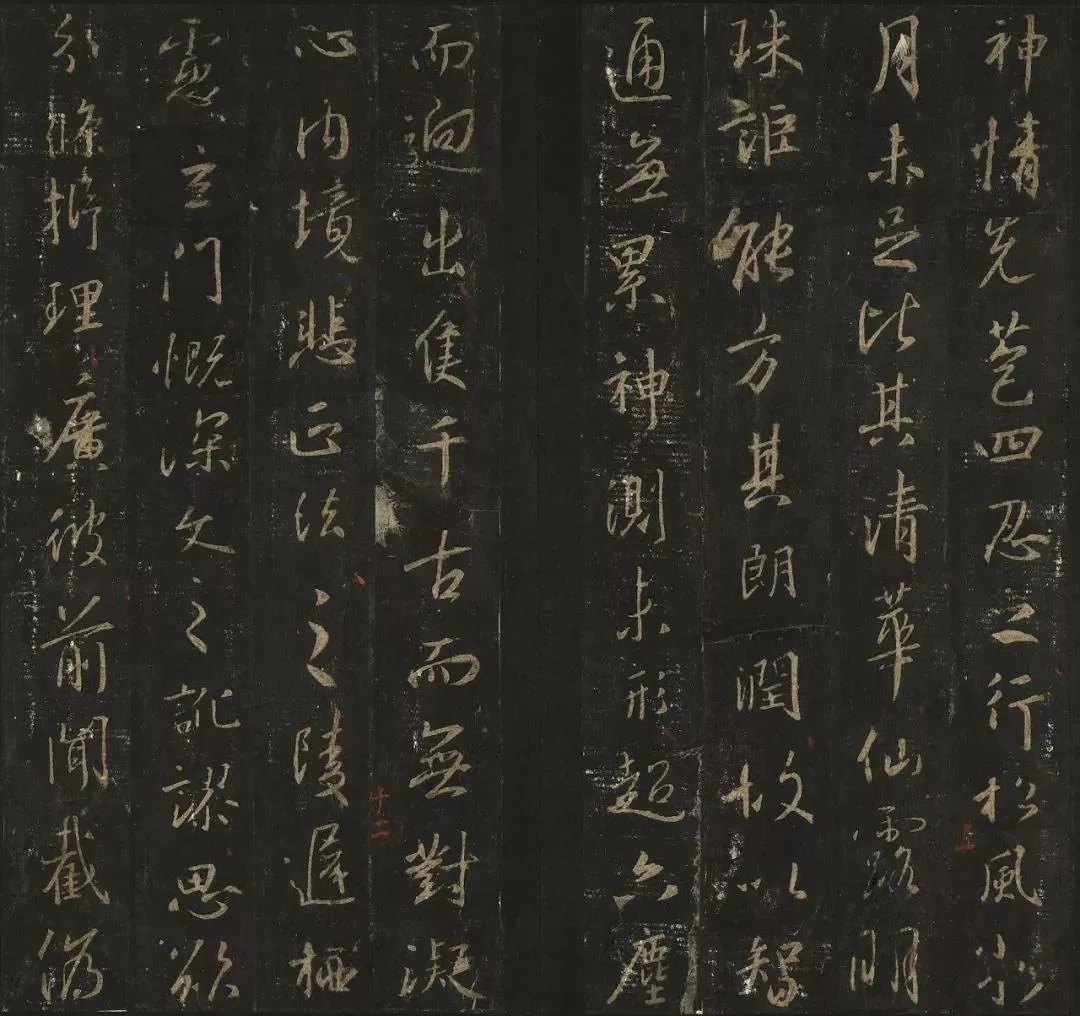 神情先苞四忍之行松風水
月未足比其清華仙露明
珠詎能方其朗潤故以智
通無累神測未形超六塵
而迥出隻千古而無對凝
心内境悲正法之陵遲栖
慮玄門慨深文之訛謬思欲
分條析理廣彼前聞截偽
上
十二